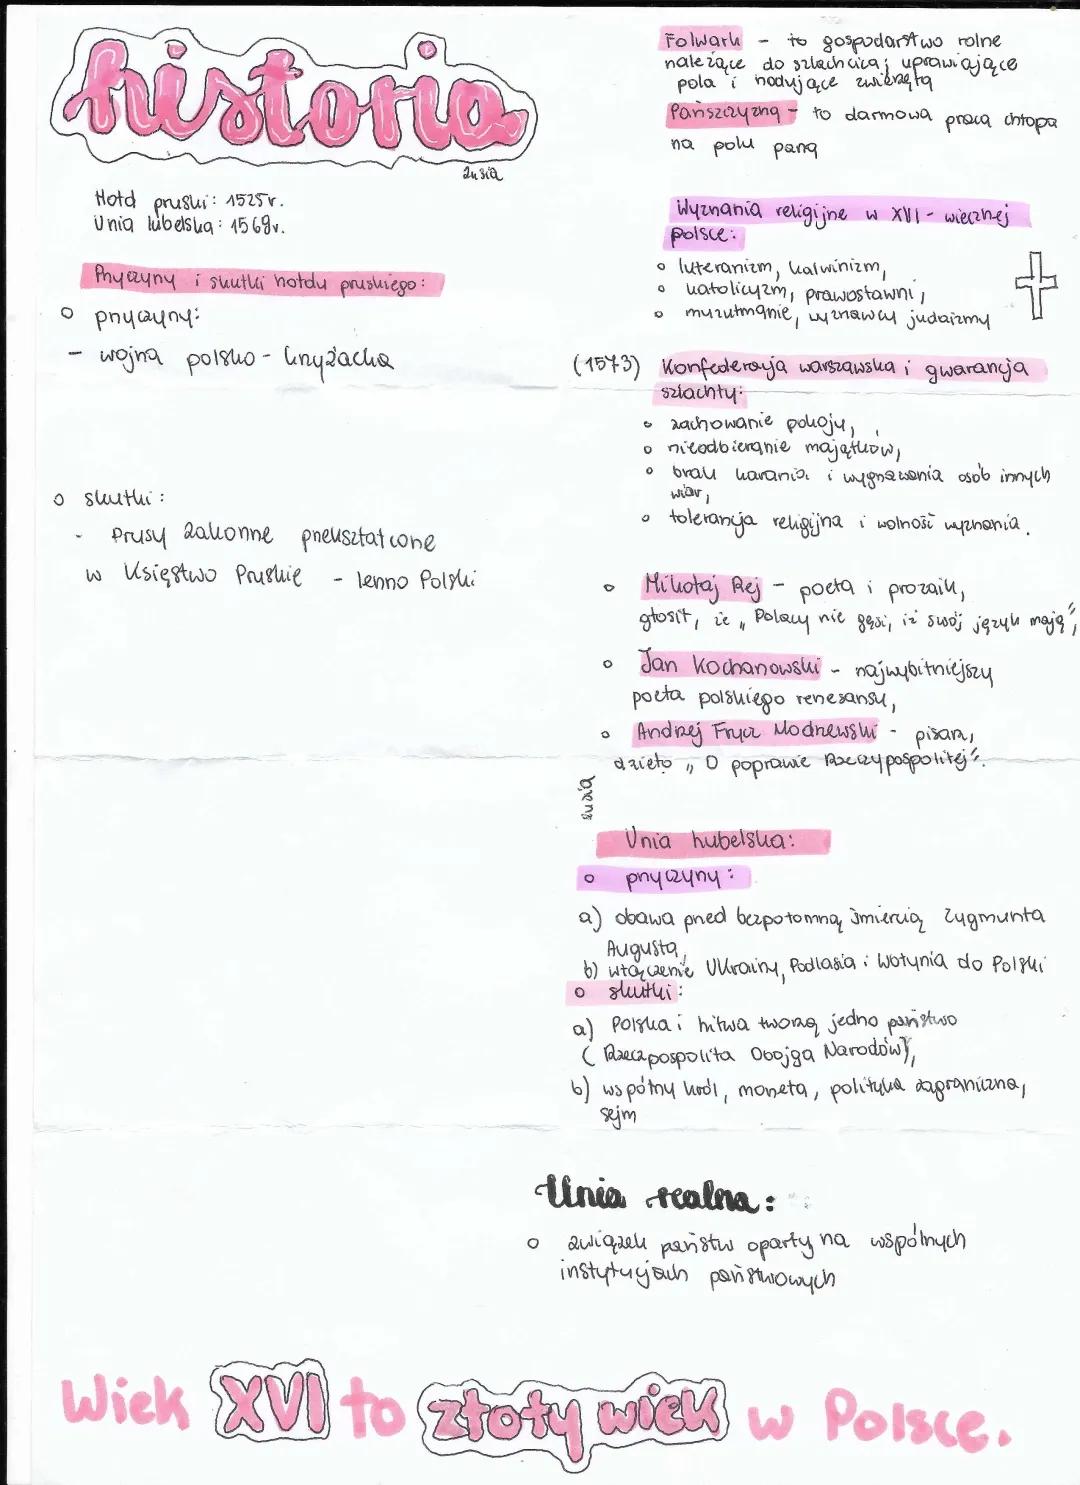 historia
zusia
Hołd pruski: 1525r.
Unia lubelska: 1569r.
Przyczyny i skutki hołdu pruskiego:
o przyczyny:
- wojna polsko - krzyżacka
o skutki:
- Prusy Zakonne przekształcone
w Księstwo Pruskie - lenno Polski
Folwark - to gospodarstwo rolne
należące do szlachcica; uprawiające
pola i hodujące zwierzęta
Pańszczyzna - to darmowa praca chłopa
na polu pana
Wyznania religijne w XVI - wiecznej
polsce:
o luteranizm, kalwinizm,
o katolicyzm, prawosławni,
o muzułmanie, wyznawcy judaizmy
(1573) Konfederacja warszawska i gwarancja
szlachty:
o zachowanie pokoju,
o nieodbieranie majątków,
o brak karania i wygnawania osób innych
wiar,
o tolerancja religijna i wolność wyznania.
o Mikołaj Rej - poeta i prozaik,
głosił, że „Polacy nie gęsi, iż swój język mają",
o Jan Kochanowski - najwybitniejszy
poeta polskiego renesansu,
o Andrzej Frycz Modrzewski - pisarz,
dzieło „O poprawie Rzeczypospolitej".
zusia
Unia lubelska:
o przyczyny:
a) obawa przed bezpotomną śmiercią Zygmunta
Augusta,
b) włączenie Ukrainy, Podlasia i Wołynia do Polski
o skutki:
a) Polska i Litwa tworzą jedno państwo
(Rzeczpospolita Obojga Narodów),
b) wspólny król, moneta, polityka zagraniczna,
sejm
Unia realna:
o związek państw oparty na wspólnych
instytucjach państwowych
Wiek XVI to złoty wiek w Polsce.